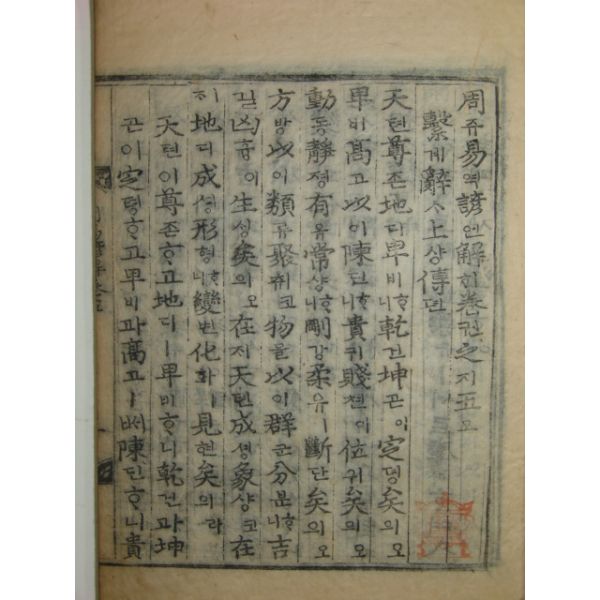 周쥬易역諺언解히卷권之지五오
繫계辭ᄉᆞ上샹傳뎐
天텬尊존地디卑비ᄒᆞ니乾건坤곤이定뎡矣의오
卑비高고以이陳딘ᄒᆞ니貴귀賤쳔이位위矣의오
動동靜졍有유常샹ᄒᆞ니剛강柔유ㅣ斷단矣의오
方방以이類류聚취코物믈以이群군分분ᄒᆞ니吉
길凶흉이生성矣의오在지天텬成셩象샹코在
지地디成셩形형ᄒᆞ니變변化화ㅣ見현矣의라
天텬이尊존ᄒᆞ고地디ㅣ卑비ᄒᆞ니乾건과坤
곤이定뎡ᄒᆞ고卑비과高고ㅣᄡᅥ陳딘ᄒᆞ니貴